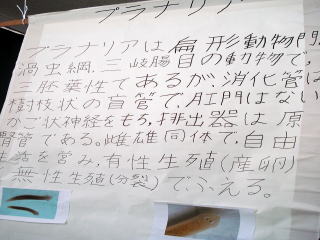 プラナリア
プラナリアは扁形動物門
渦虫綱.三岐腸目の動物で,
三胚葉性であるが,消化管は
樹枝状の盲管で,肛門はない
かご状神経をもち,排出器は原
腎管である。雌雄同体で,自由
生活を営み,有性生殖(産卵)
無性生殖(分裂)でふえる。